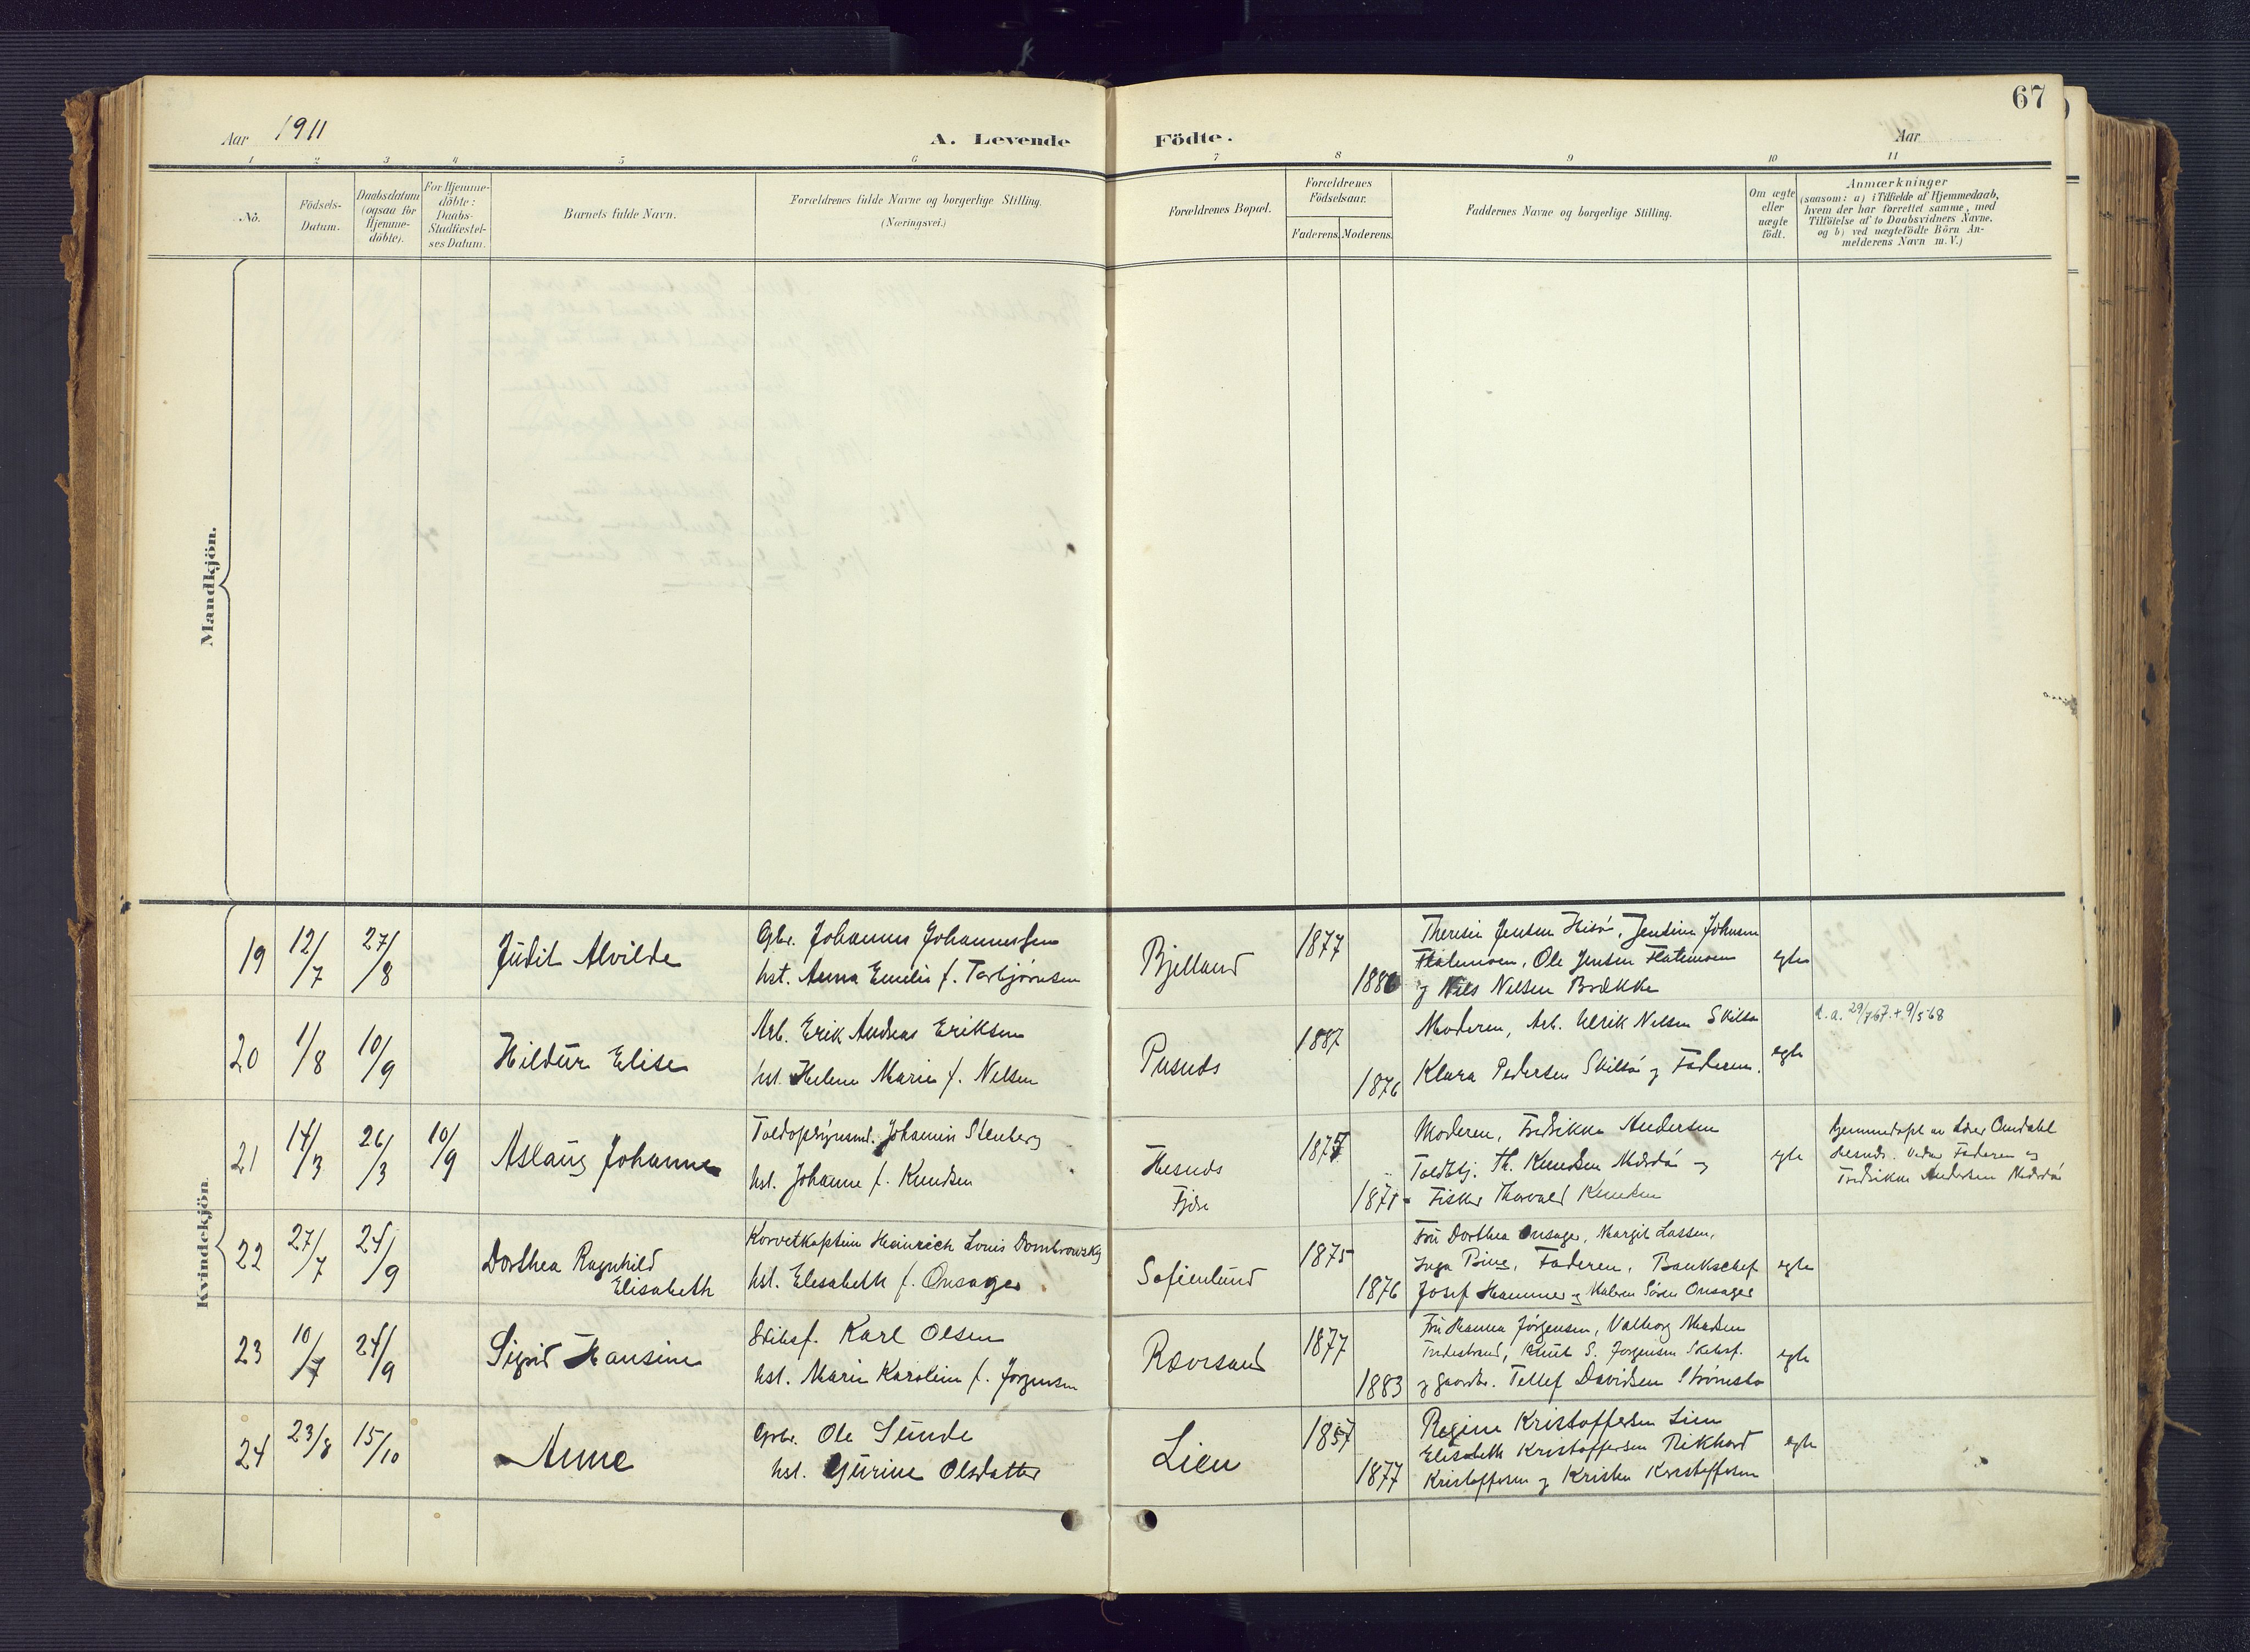 67
Aar 1911
A. Levende
Födte.
Aar
1 2 3 4 5 6 7 8 9 10 11
No.
Födsels-
Datum.
Daabsdatum
(ogsaa for
Hjemme-
döbte).
For Hjemme-
döbte:
Daabs-
Stadfæstel-
ses Datum.
Barnets fulde Navn.
Forældrenes fulde Navne og borgerlige Stilling.
(Næringsvei.)
Forældrenes Bopæl.
Forældrenes
Födselsaar.
Faderens. Moderens.
Faddernes Navne og borgerlige Stilling.
Om ægte
eller
uægte
födt.
Anmærkninger
(saasom: a) i Tilfælde af Hjemmedaab,
hvem der har forrettet samme, med
Tilföielse af to Daabsvidners Navne.
og b) ved uægtefödte Börn An-
melderens Navn m. V.)
Mandkjön.
Kvindekjön.
19 12/7 27/8 Judit Alvilde
Gbr. Johannes Johannessen
hst. Anna Emilie f. Torbjørnsen
Bjelland 1877 1886
Theresie Jensen Hisø, Jensine Johnsen
Flatemoen, Ole Jensen Flatemoen
og Nils Nelsen Brække
egte
20 1/8 10/9 Hildur Elise
Arb. Erik Andreas Eriksen
hst. Helene Marie f. Nelsen
Pusnes 1887 1876
Moderen, Arb. Ulrik Nelsen Skilsø
Klara Pedersen Skilsø og Faderen.
egte
d.a. 29/7 67. + 9/5 68
21 14/3 26/3 10/9 Aslaug Johanne
Toldopsynsmd. Johannes Stenberg
hst. Johanne f. Knudsen
Hesnes
Fjære
1875 1871
Moderen, Fredrikke Andersen
Toldbtj. Th. Knudsen Mærdø og
Fisker Thorvald Knudsen
egte
hjemmedøpt av Lærer Omdahl
Hesnes. Vidner Faderen og
Fredrikke Andersen Mærdø
22 27/7 24/9 Dorthea Ragnhild
Elisabeth
Korvetkaptein Heinrich Louis Dombrowsky
hst. Elesabeth f. Onsager
Sofienlund 1875 1876
Fru Dorthea Onsager, Margit Lassen,
Inga Bing, Faderen, Bankschef
Josef Hammer og Maleren Søren Onsager
egte
23 10/7 24/9 Sigrid Hansine
Skibsf. Karl Olsen
hst. Marie Karoline f. Jørgensen
Rævesand 1877 1883
Fru Hanna Jørgensen, Valborg Madsen
Tvedestrand, Knut S. Jørgensen Skibsf.
og Gaardbr. Tellef Davidsen Strømsbo
egte
24 23/8 15/10 Anne
Gbr. Ole Sunde
hst. Gurine Olsdatter
Lien 1857 1877
Regine Kristoffersen Lien
Elisabeth Kristoffersen Rikhard
Kristoffersen og Kristen Kristoffersen
egte